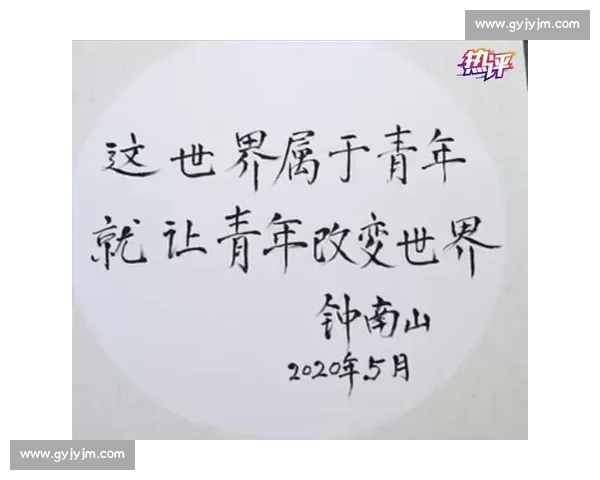 www.gyjyjm.com
热评
这世界属于青年
就让青年改变世界
钟南山
2020年5月
www.gyjyjm.com